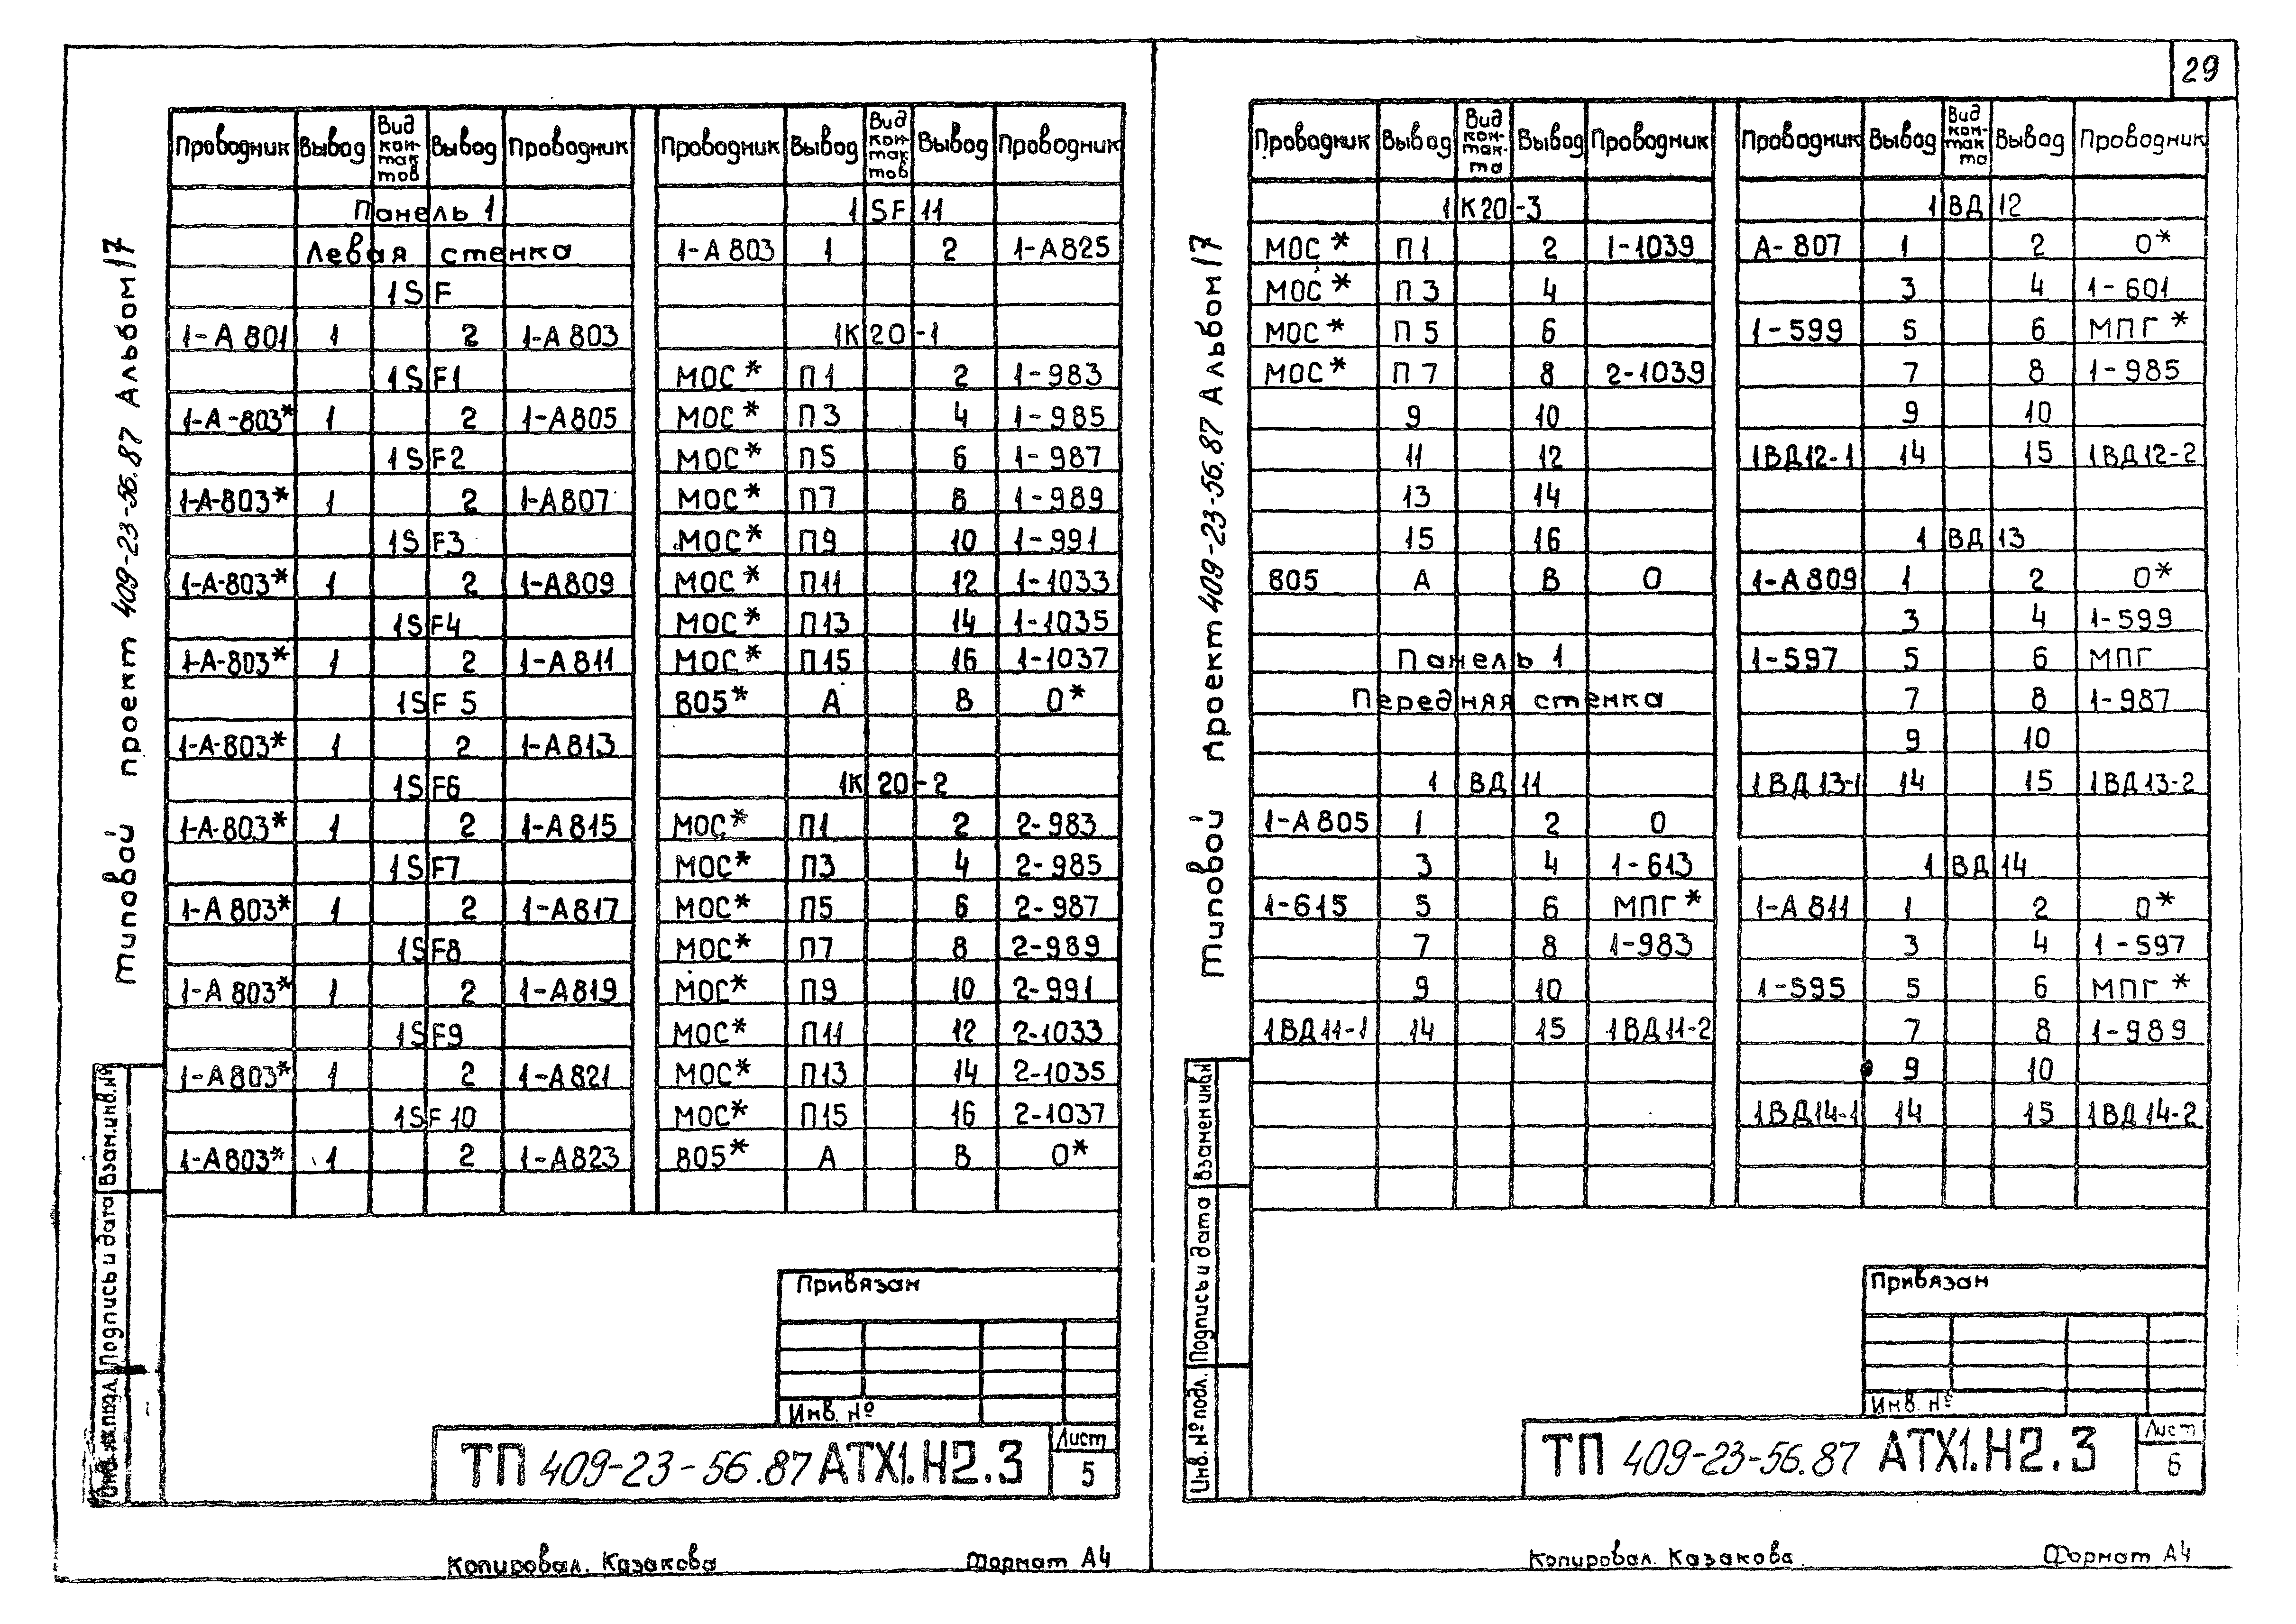 29
Типовой проект 409-23-56.87 Альбом 17
Проводник Вывод Вид контактов Вывод Проводник
Панель 1
Левая стенка
1SF
1-А801 1 2 1-А803
1SF1
1-А-803* 1 2 1-А805
1SF2
1-А-803* 1 2 1-А807
1SF3
1-А-803* 1 2 1-А809
1SF4
1-А-803* 1 2 1-А811
1SF5
1-А-803* 1 2 1-А813
1SF6
1-А-803* 1 2 1-А815
1SF7
1-А803* 1 2 1-А817
1SF8
1-А803* 1 2 1-А819
1SF9
1-А803* 1 2 1-А821
1SF10
1-А803* 1 2 1-А823
Проводник Вывод Вид контактов Вывод Проводник
1SF11
1-А803 1 2 1-А825
1К20-1
МОС* П1 2 1-983
МОС* П3 4 1-985
МОС* П5 6 1-987
МОС* П7 8 1-989
МОС* П9 10 1-991
МОС* П11 12 1-1033
МОС* П13 14 1-1035
МОС* П15 16 1-1037
805* А В 0*
1К20-2
МОС* П1 2 2-983
МОС* П3 4 2-985
МОС* П5 6 2-987
МОС* П7 8 2-989
МОС* П9 10 2-991
МОС* П11 12 2-1033
МОС* П13 14 2-1035
МОС* П15 16 2-1037
805* А В 0*
Взам.инв.№
Подпись и дата
подл.
Привязан
Инв. №
ТП 409-23-56.87 АТХ1.Н2.3
Лист
5
Копировал. Казакова
Формат А4
Типовой проект 409-23-56.87 Альбом 17
Проводник Вывод Вид контакта Вывод Проводник
1К20-3
МОС* П1 2 1-1039
МОС* П3 4
МОС* П5 6
МОС* П7 8 2-1039
9 10
11 12
13 14
15 16
805 А В 0
Панель 1
Передняя стенка
1ВД11
1-А805 1 2 0
3 4 1-613
1-615 5 6 МПГ*
7 8 1-983
9 10
1ВД11-1 14 15 1ВД11-2
Проводник Вывод Вид контакта Вывод Проводник
1ВД12
А-807 1 2 0*
3 4 1-601
1-599 5 6 МПГ*
7 8 1-985
9 10
1ВД12-1 14 15 1ВД12-2
1ВД13
1-А809 1 2 0*
3 4 1-599
1-597 5 6 МПГ
7 8 1-987
9 10
1ВД13-1 14 15 1ВД13-2
1ВД14
1-А811 1 2 0*
3 4 1-597
1-595 5 6 МПГ*
7 8 1-989
9 10
1ВД14-1 14 15 1ВД14-2
Взамен
Подпись и дата
Инв. № подл.
Привязан
Инв. №
ТП 409-23-56.87 АТХ1.Н2.3
Лист
6
Копировал. Казакова
Формат А4